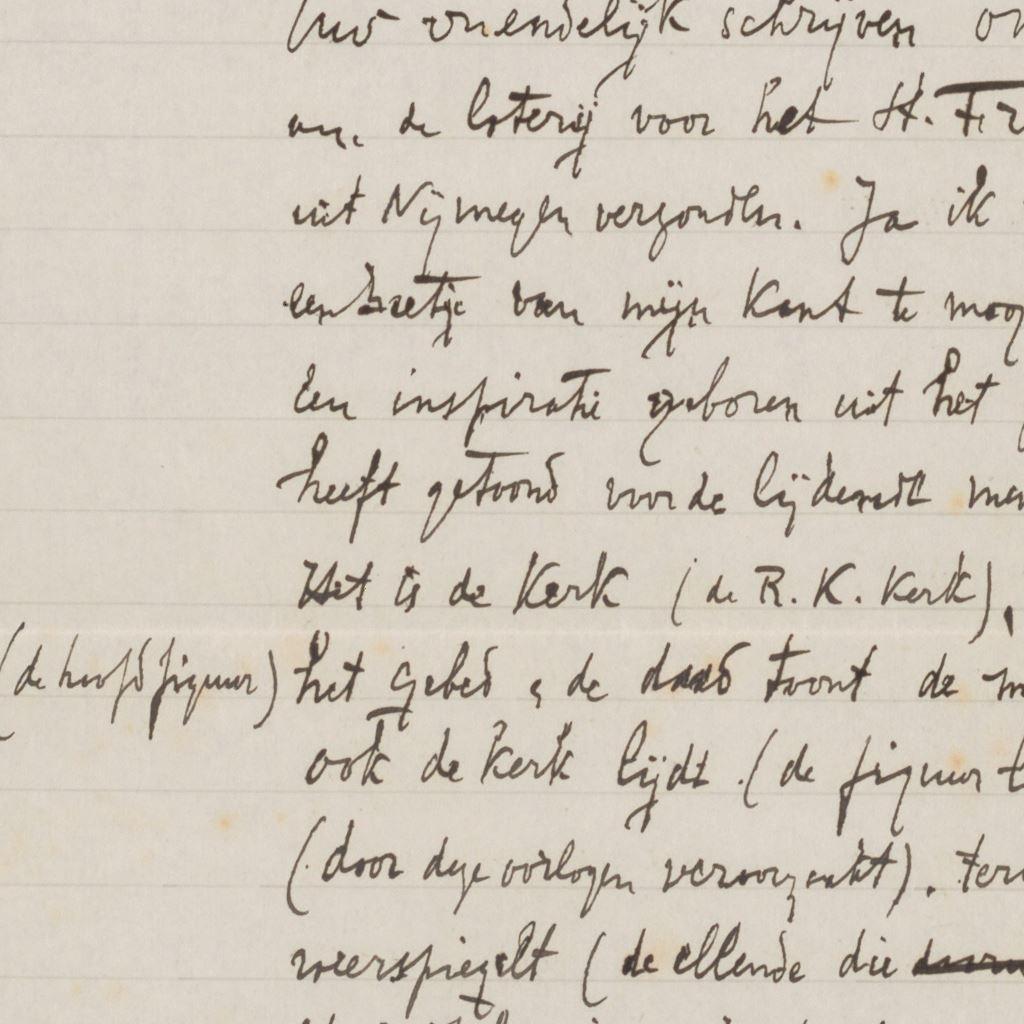 Uw vriendelijk schrijven
de loterij voor het St.
uit Nijmegen verzonden. Ja ik
van mijn kant te
Een inspiratie geboren uit het
heeft getoond voor de lijdende
Het is de Kerk (de R. K. Kerk),
(de hoofdfiguur) het gebed & de daad toont de
ook de Kerk lijdt. (de figuur
(door deze oorlogen veroorzaakt).
weerspiegelt (de ellende die